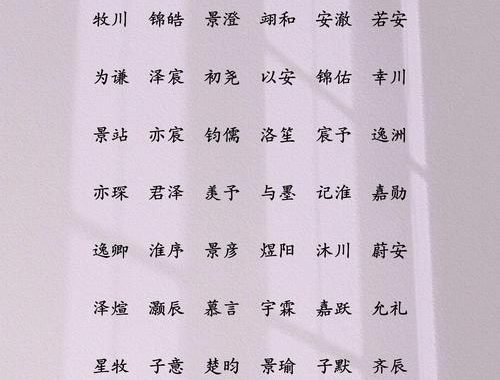 牧川 锦皓 景澄 翊和 安澈 若安
为谦 泽宸 初尧 以安 锦佑 幸川
景站 亦宸 钧儒 洛笙 宸予 逸洲
亦琛 君泽 羡予 与墨 记淮 嘉勋
逸卿 淮序 景彦 煜阳 沐川 蔚安
泽煊 灏辰 慕言 宇霖 嘉跃 允礼
星牧 子意 楚昀 景瑜 子默 齐辰